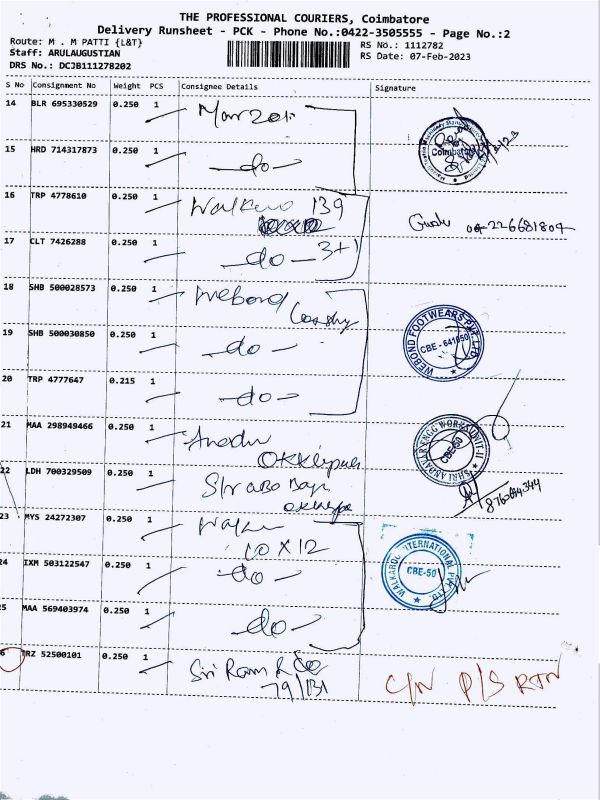 THE PROFESSIONAL COURIERS, Coimbatore
Delivery Runsheet - PCK - Phone No.:0422-3505555 - Page No.:2
Route: M . M PATTI {L&T}
RS No.: 1112782
Staff: ARULAUGUSTIAN
RS Date: 07-Feb-2023
DRS No.: DCJB111278202
S No Consignment No Weight PCS Consignee Details Signature
14 BLR 695330529 0.250 1
Coimbatore
15 HRD 714317873 0.250 1 do
16 TRP 4778610 0.250 1 139
17 CLT 7426288 0.250 1 do 3+1
18 SHB 500028573 0.250 1 Webond
WEBOND FOOTWEARS PVT. LTD
CBE - 641050
19 SHB 500030850 0.250 1 do
20 TRP 4777647 0.215 1 do
21 MAA 298949466 0.250 1
ENGG WORKS UNIT-II
CBE-50
22 LDH 700329509 0.250 1
23 MYS 24272307 0.250 1
10 X 12
24 IXM 503122547 0.250 1 do
WALKAROO INTERNATIONAL PVT. LTD
CBE-50
25 MAA 569403974 0.250 1 do
26 TRZ 52500101 0.250 1 Sri Ram &amp; Co
79/131
C/N P/S RTN